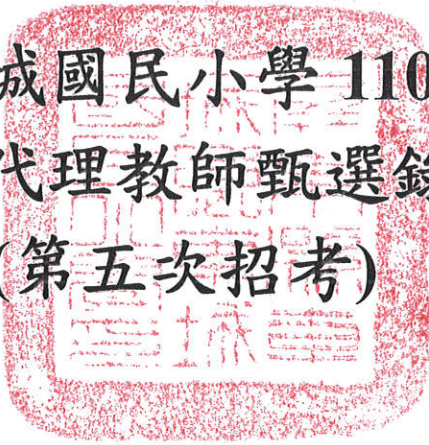 成國民小學 110
代理教師甄選錄
(第五次招考)